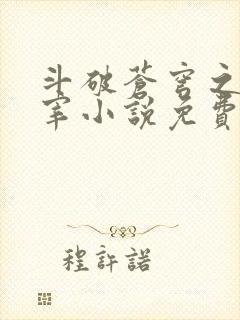 斗破蒼穹之
宰小說免費
程許諾